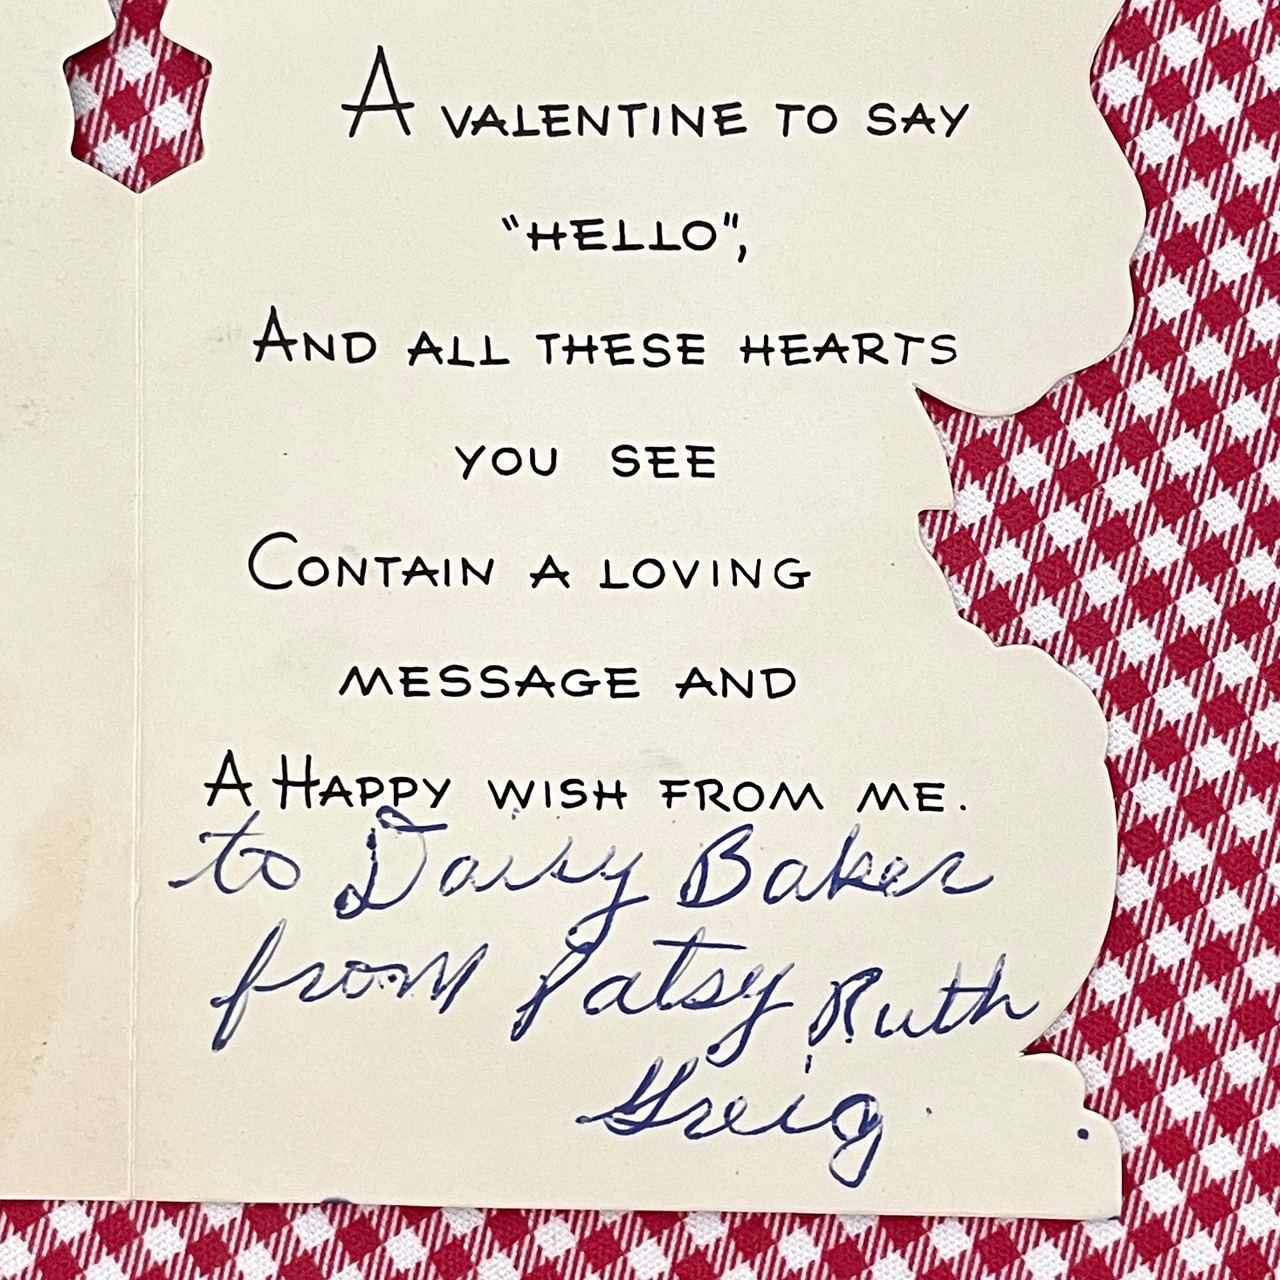 A VALENTINE TO SAY
"HELLO",
AND ALL THESE HEARTS
YOU SEE
CONTAIN A LOVING
MESSAGE AND
A HAPPY WISH FROM ME.
to Daisy Baker
from Patsy Ruth
Greig.